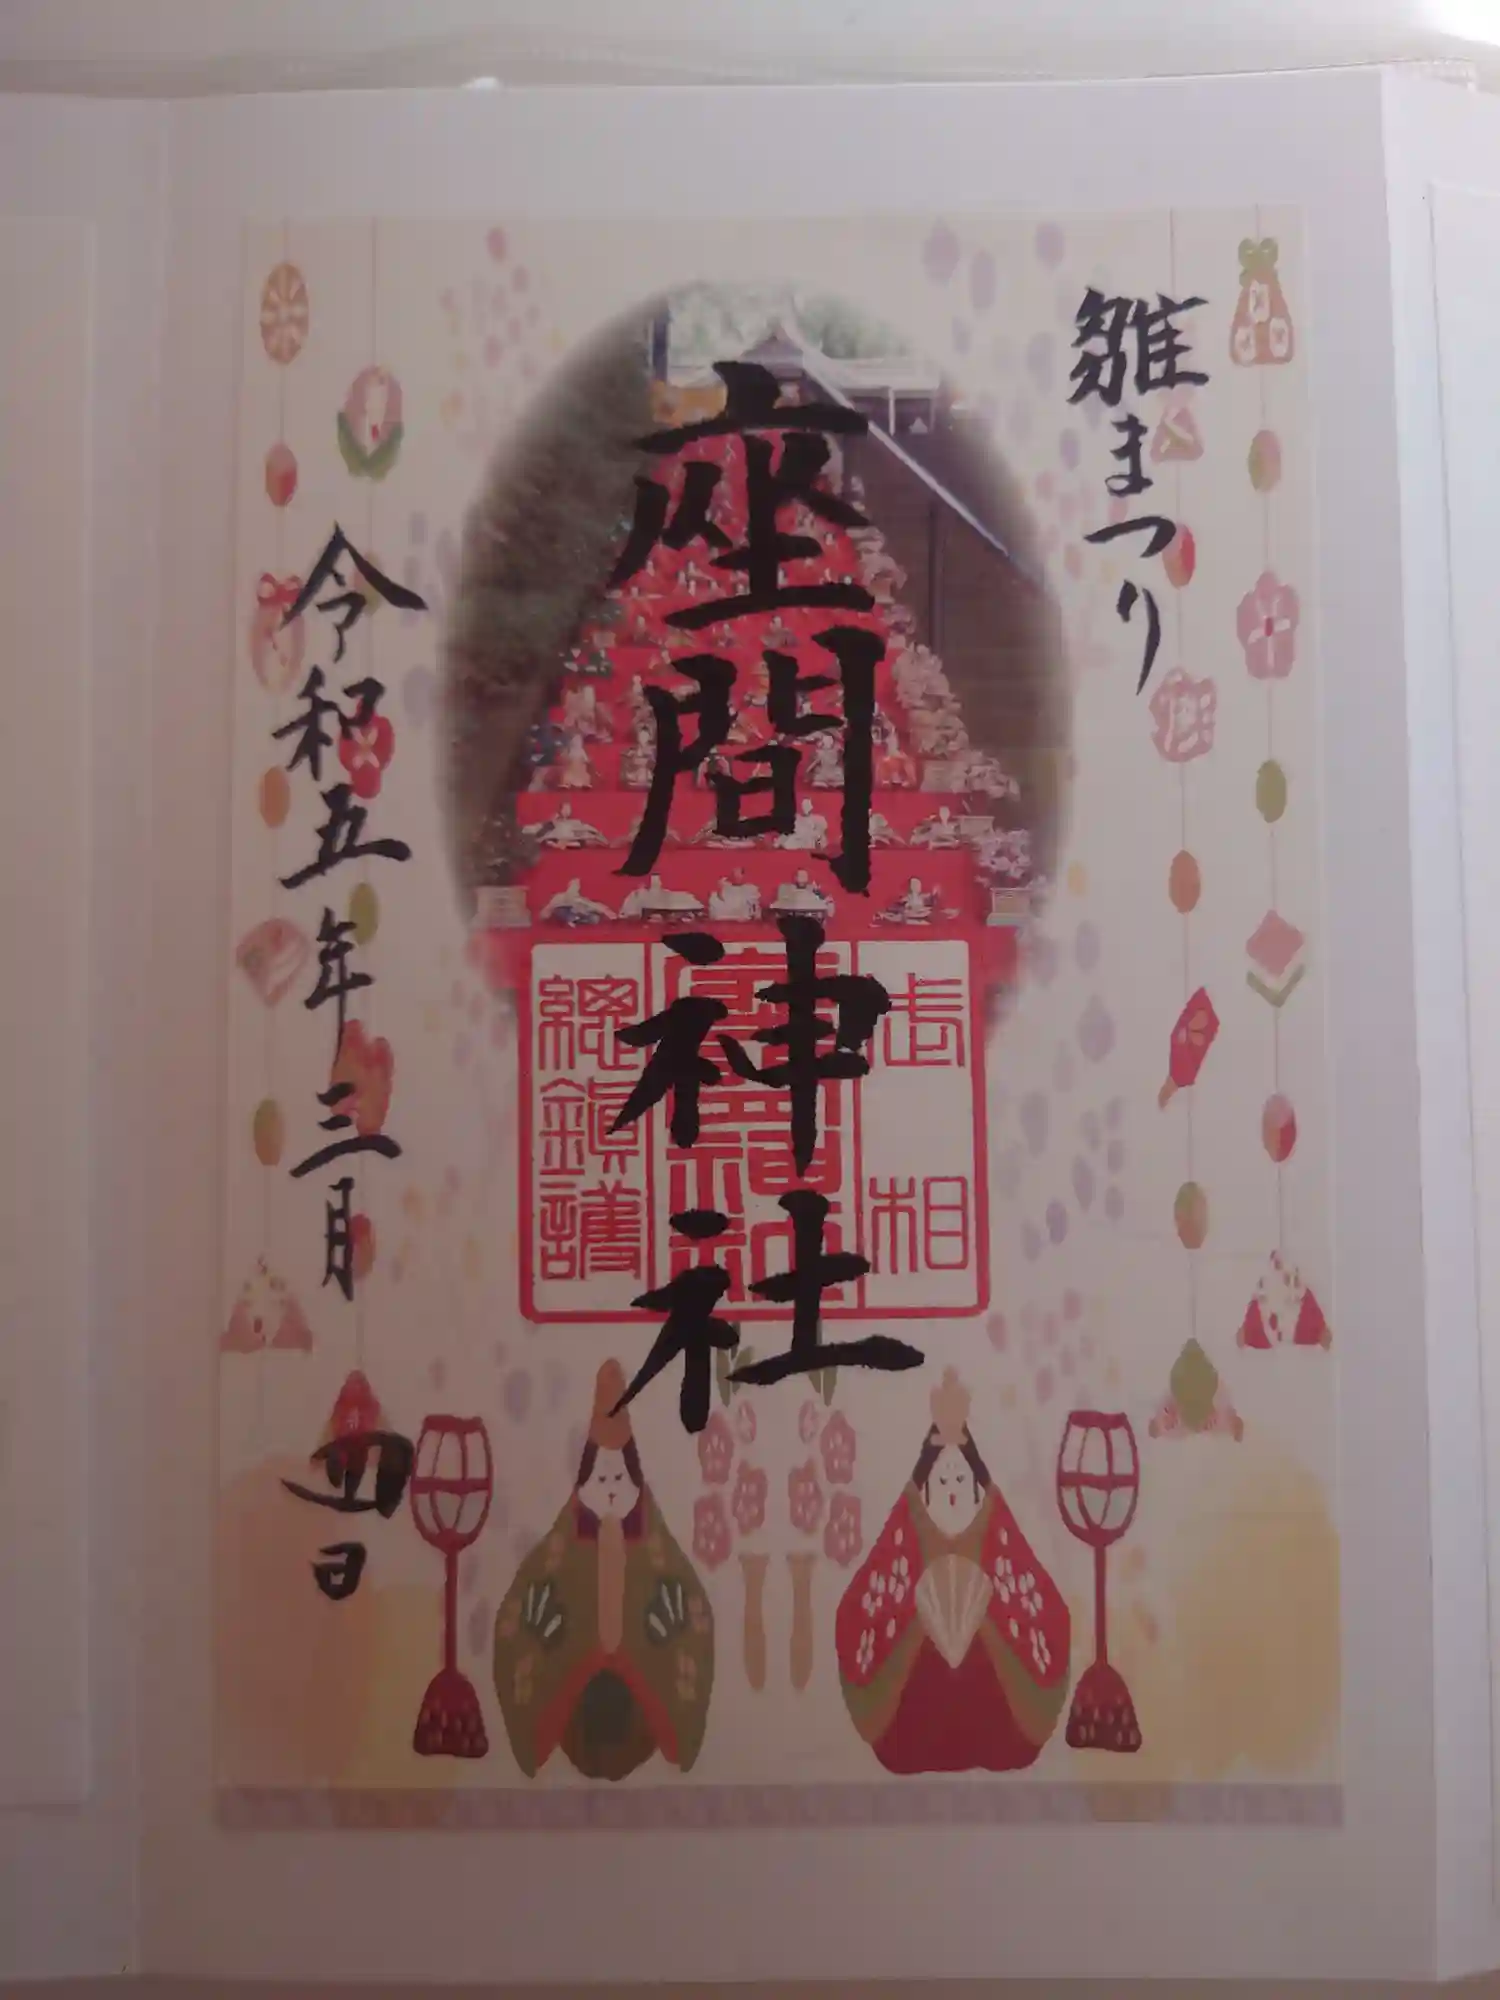 雛まつり
座間神社
相武
座間神社
總鎮護
令和五年三月四日